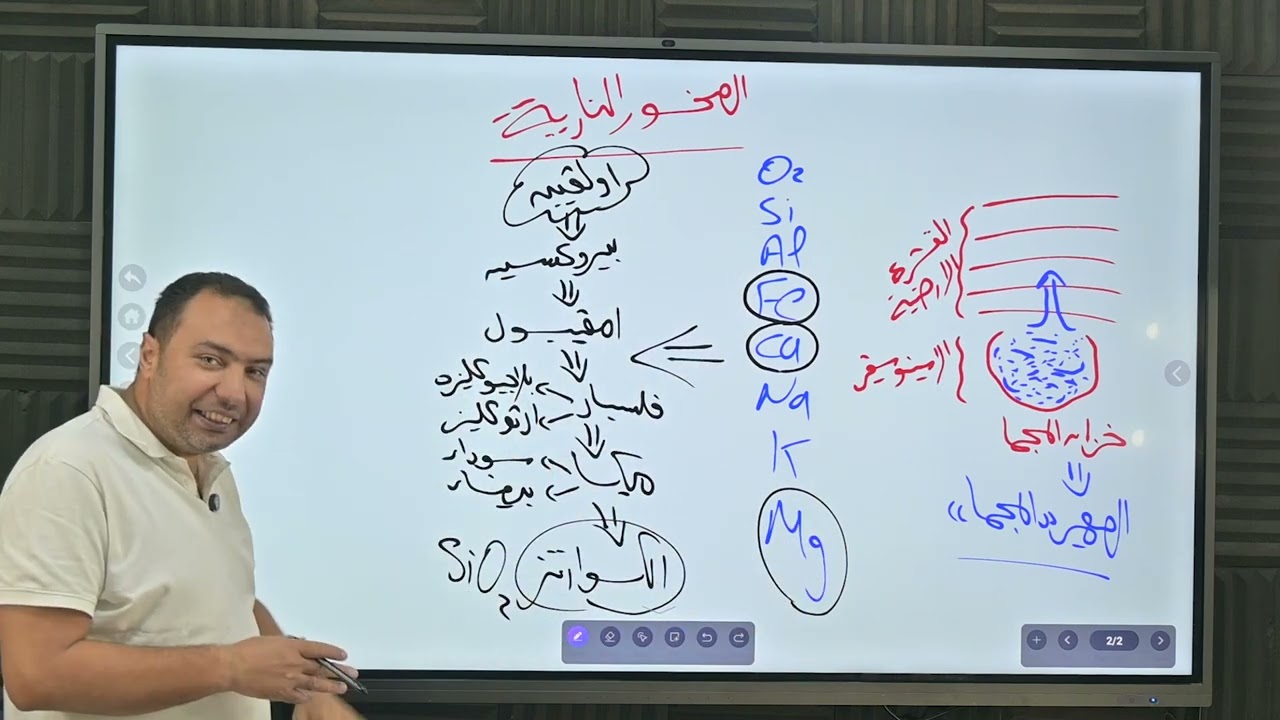 الصخور النارية
اولفين
بيروكسين
امفيبول
فلسبار
بلاجيوكليز
ارثوكليز
ميكا
سوداء
بيضاء
الكوارتز
SiO2
O2
Si
Al
Fe
Ca
Na
K
Mg
القشرة
الارضية
خزان المجما
الصهير "المجما"
2/2